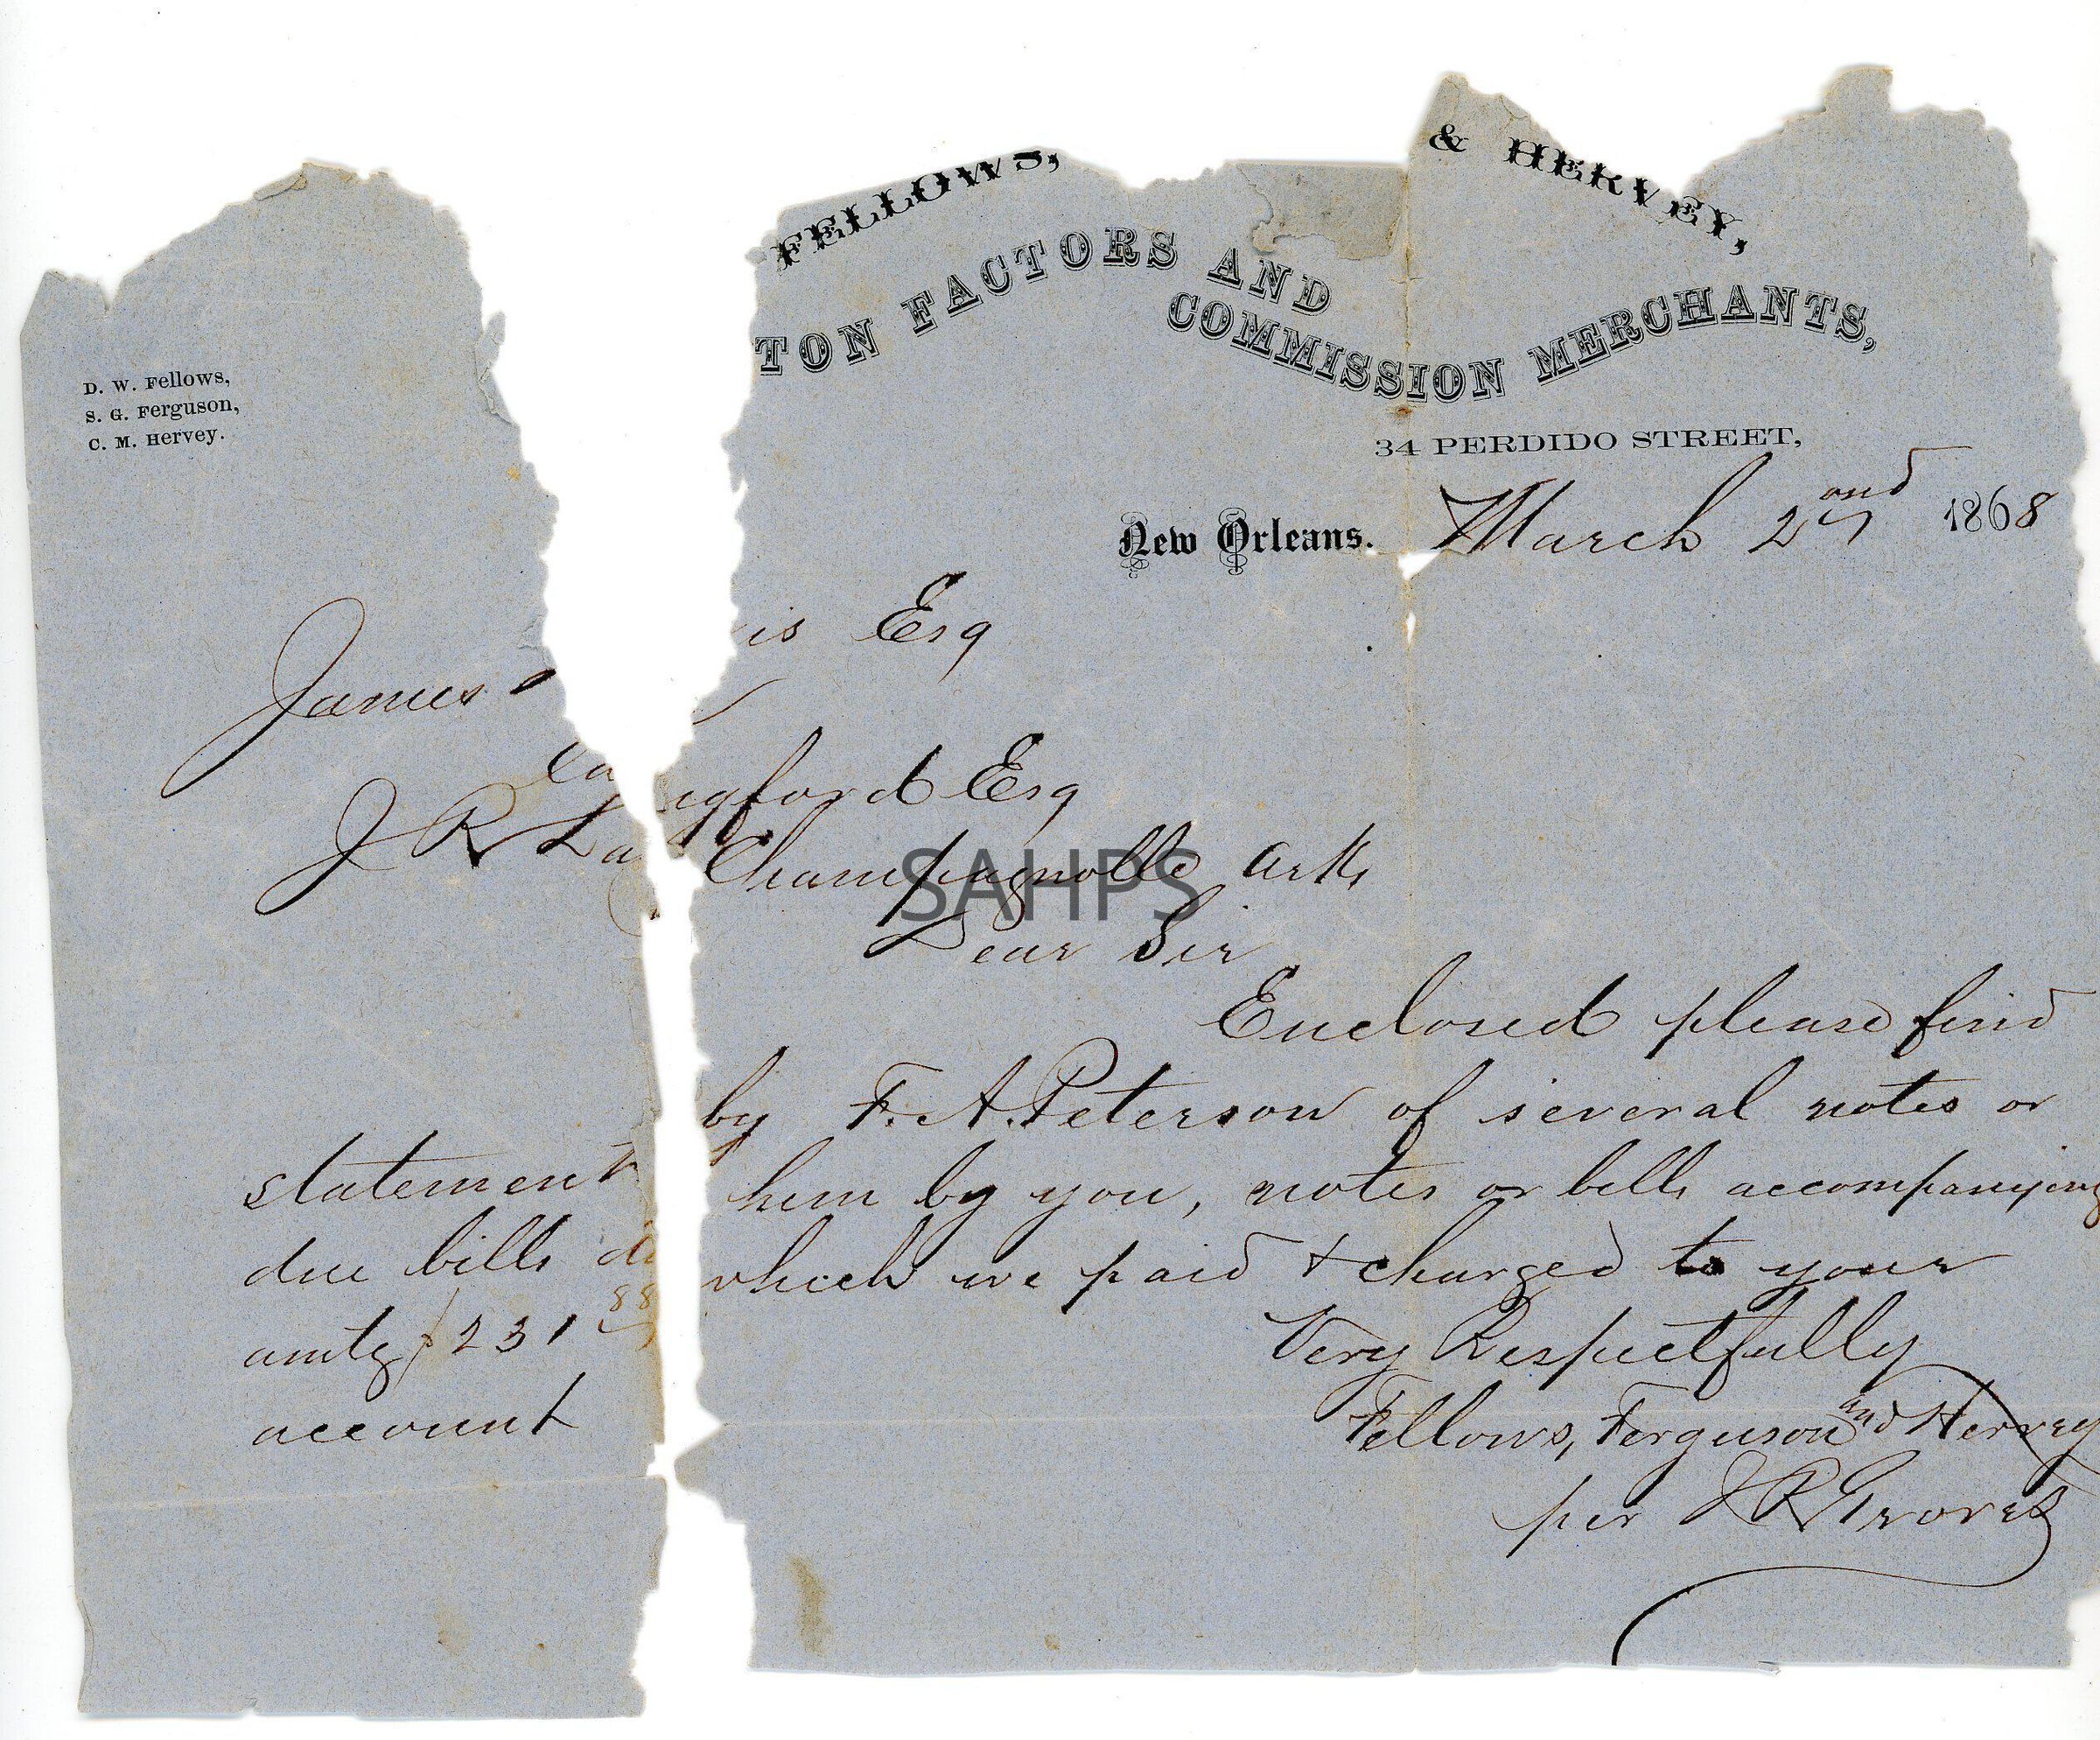 FELLOWS, & HERVEY,
TON FACTORS AND
COMMISSION MERCHANTS,
D. W. Fellows,
S. G. Ferguson,
C. M. Hervey.
34 PERDIDO STREET,
New Orleans. March 2nd 1868
James is Esq
Ca
J R La gford Esq
Champagnolle Ark,
Dear Sir
Enclosed please find
statement by F. A. Peterson of several notes or
due bills him by you, notes or bills accompanying
amtg 231 88 which we paid & charged to your
account
Very Respectfully
Fellows, Ferguson and Hervey
per J R Graves
SAHPS